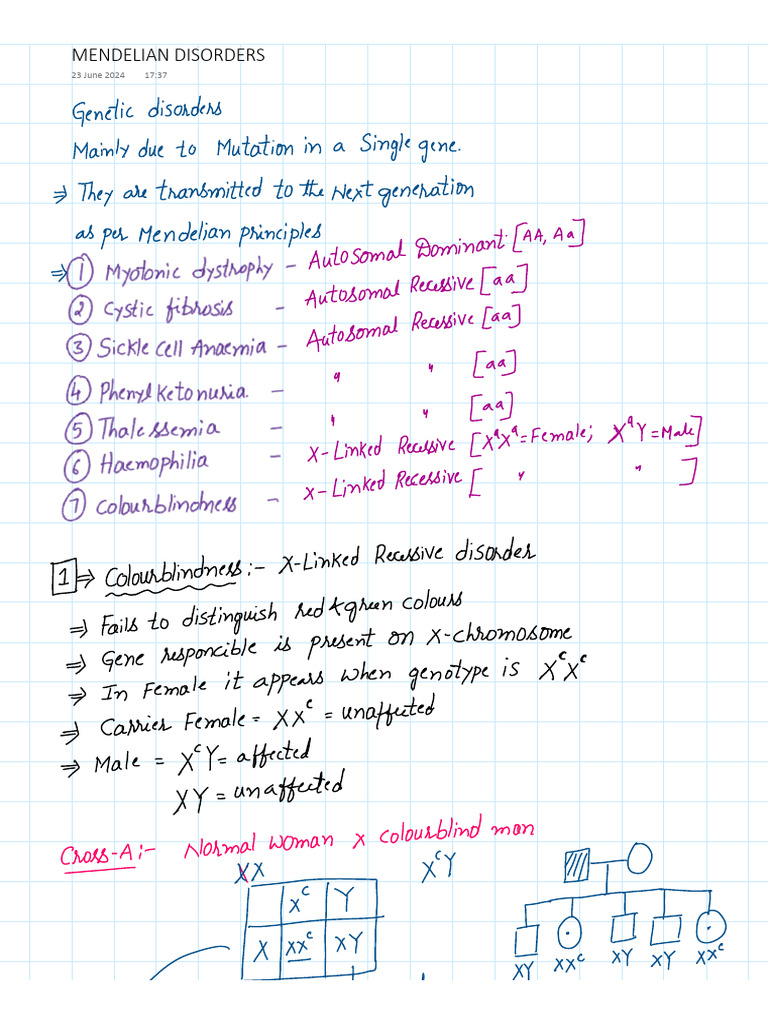 MENDELIAN DISORDERS
23 June 2024 17:37
Genetic disorders
Mainly due to Mutation in a Single gene.
⇒ They are transmitted to the Next generation
as per Mendelian principles
⇒ ① Myotonic dystrophy - Autosomal Dominant [AA, Aa]
② Cystic fibrosis - Autosomal Recessive [aa]
③ Sickle Cell Anaemia - Autosomal Recessive [aa]
④ Phenyl ketonuria - " " [aa]
⑤ Thalessemia - " " [aa]
⑥ Haemophilia - X-Linked Recessive [XᵃXᵃ = Female; XᵃY = Male]
⑦ Colourblindness - X-Linked Recessive [ " " ]
1 ⇒ Colourblindness:- X-Linked Recessive disorder
⇒ Fails to distinguish red & green colours
⇒ Gene responcible is present on X-chromosome
⇒ In Female it appears when genotype is XᶜXᶜ
⇒ Carrier Female = XXᶜ = unaffected
⇒ Male = XᶜY = affected
XY = unaffected
Cross-A:- Normal woman x colourblind man
XX XᶜY
Xᶜ Y
X XXᶜ XY
XY XXᶜ XY XY XXᶜ